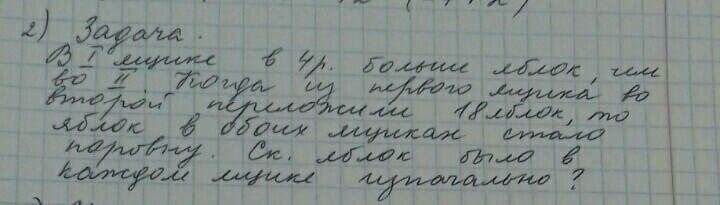 2) Задача.
В I ящике в 4 р. больше яблок, чем
во II Когда из первого ящика во
второй переложили 18 яблок, то
яблок в обоих ящиках стало
поровну. Ск. яблок было в
каждом ящике изначально?